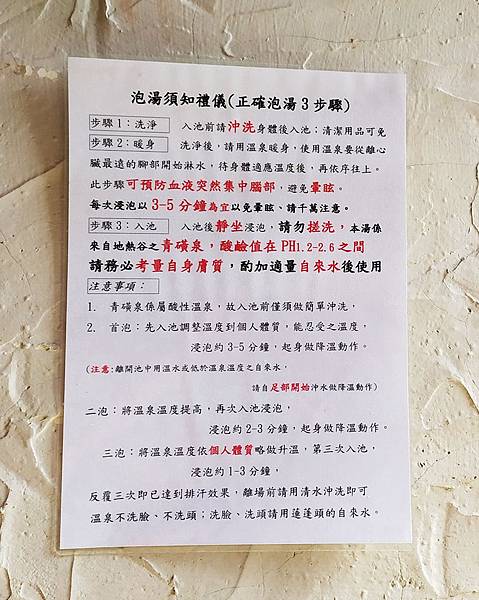 泡湯須知禮儀(正確泡湯3步驟)
步驟1：洗淨 入池前請沖洗身體後入池；清潔用品可免
步驟2：暖身 洗淨後，請用溫泉暖身，使用溫泉要從離心
臟最遠的腳部開始淋水，待身體適應溫度後，再依序往上。
此步驟可預防血液突然集中腦部，避免暈眩。
每次浸泡以3-5分鐘為宜以免暈眩、請千萬注意。
步驟3：入池 入池後靜坐浸泡，請勿搓洗，本湯係
來自地熱谷之青磺泉，酸鹼值在PH1.2-2.6之間
請務必考量自身膚質，酌加適量自來水後使用
注意事項：
1. 青磺泉係屬酸性溫泉，故入池前僅須做簡單沖洗，
2. 首泡：先入池調整溫度到個人體質，能忍受之溫度，
浸泡約3-5分鐘，起身做降溫動作。
(注意:離開池中用溫水或低於溫泉溫度之自來水，
請自足部開始沖水做降溫動作)
二泡：將溫泉溫度提高，再次入池浸泡，
浸泡約2-3分鐘，起身做降溫動作。
三泡：將溫泉溫度依個人體質略做升溫，第三次入池，
浸泡約1-3分鐘，
反覆三次即已達到排汗效果，離場前請用清水沖洗即可
溫泉不洗臉、不洗頭；洗臉、洗頭請用蓮蓬頭的自來水。